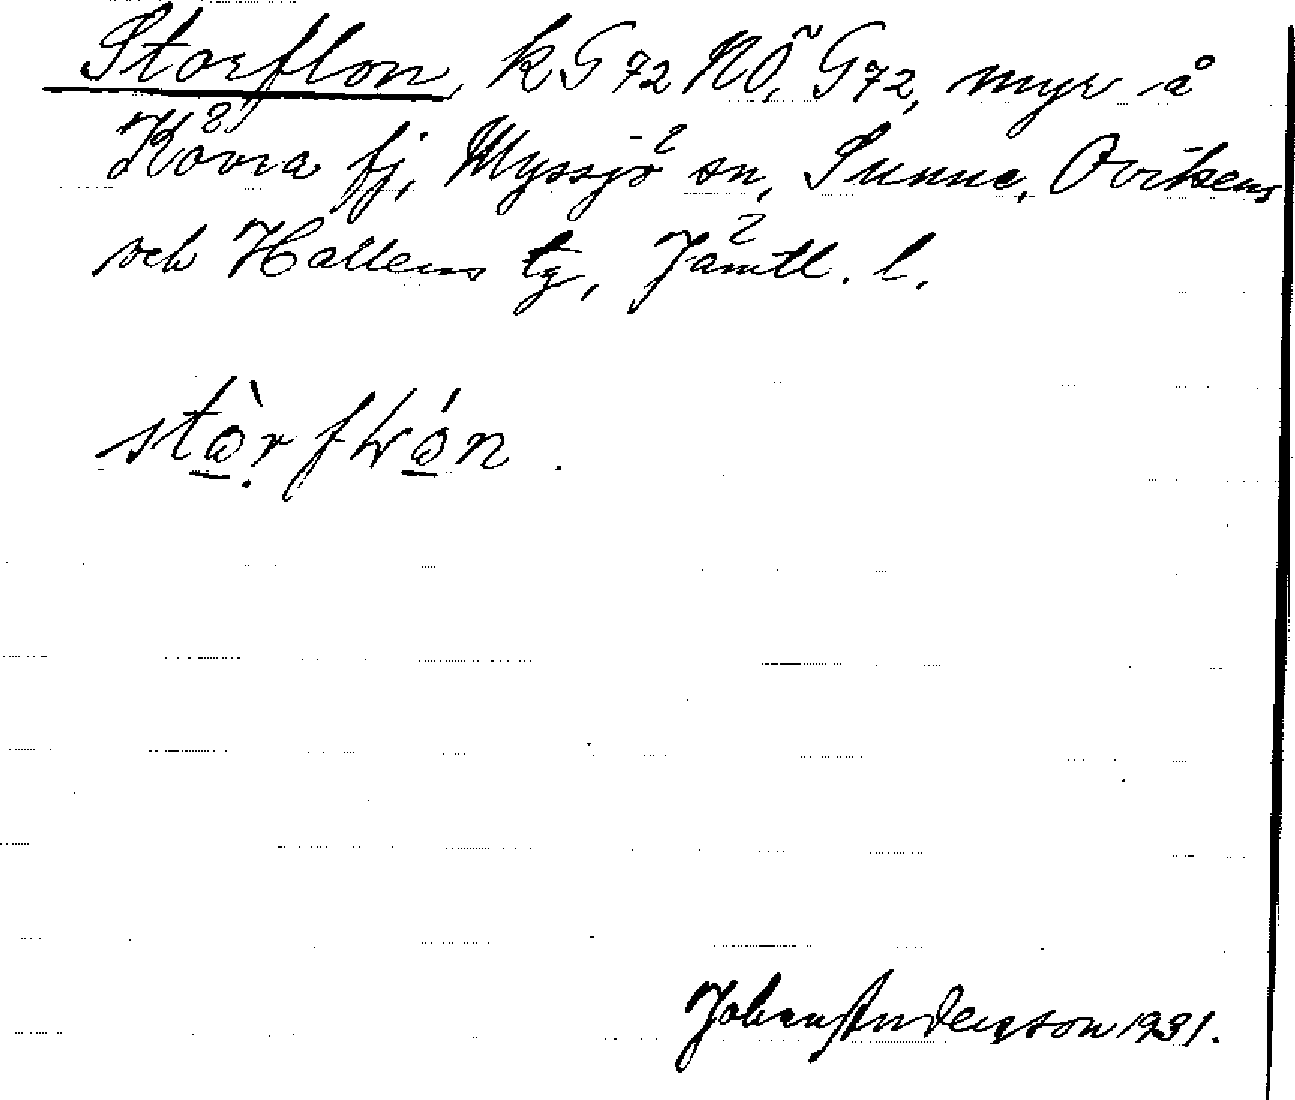 Storflon, k G 72 NÖ, G 72, myr å
Kövra fj, Myssjö sn, Sunne, Ovikens
och Hallens tg, Jämtl. l.
Johan Anderson 1931.